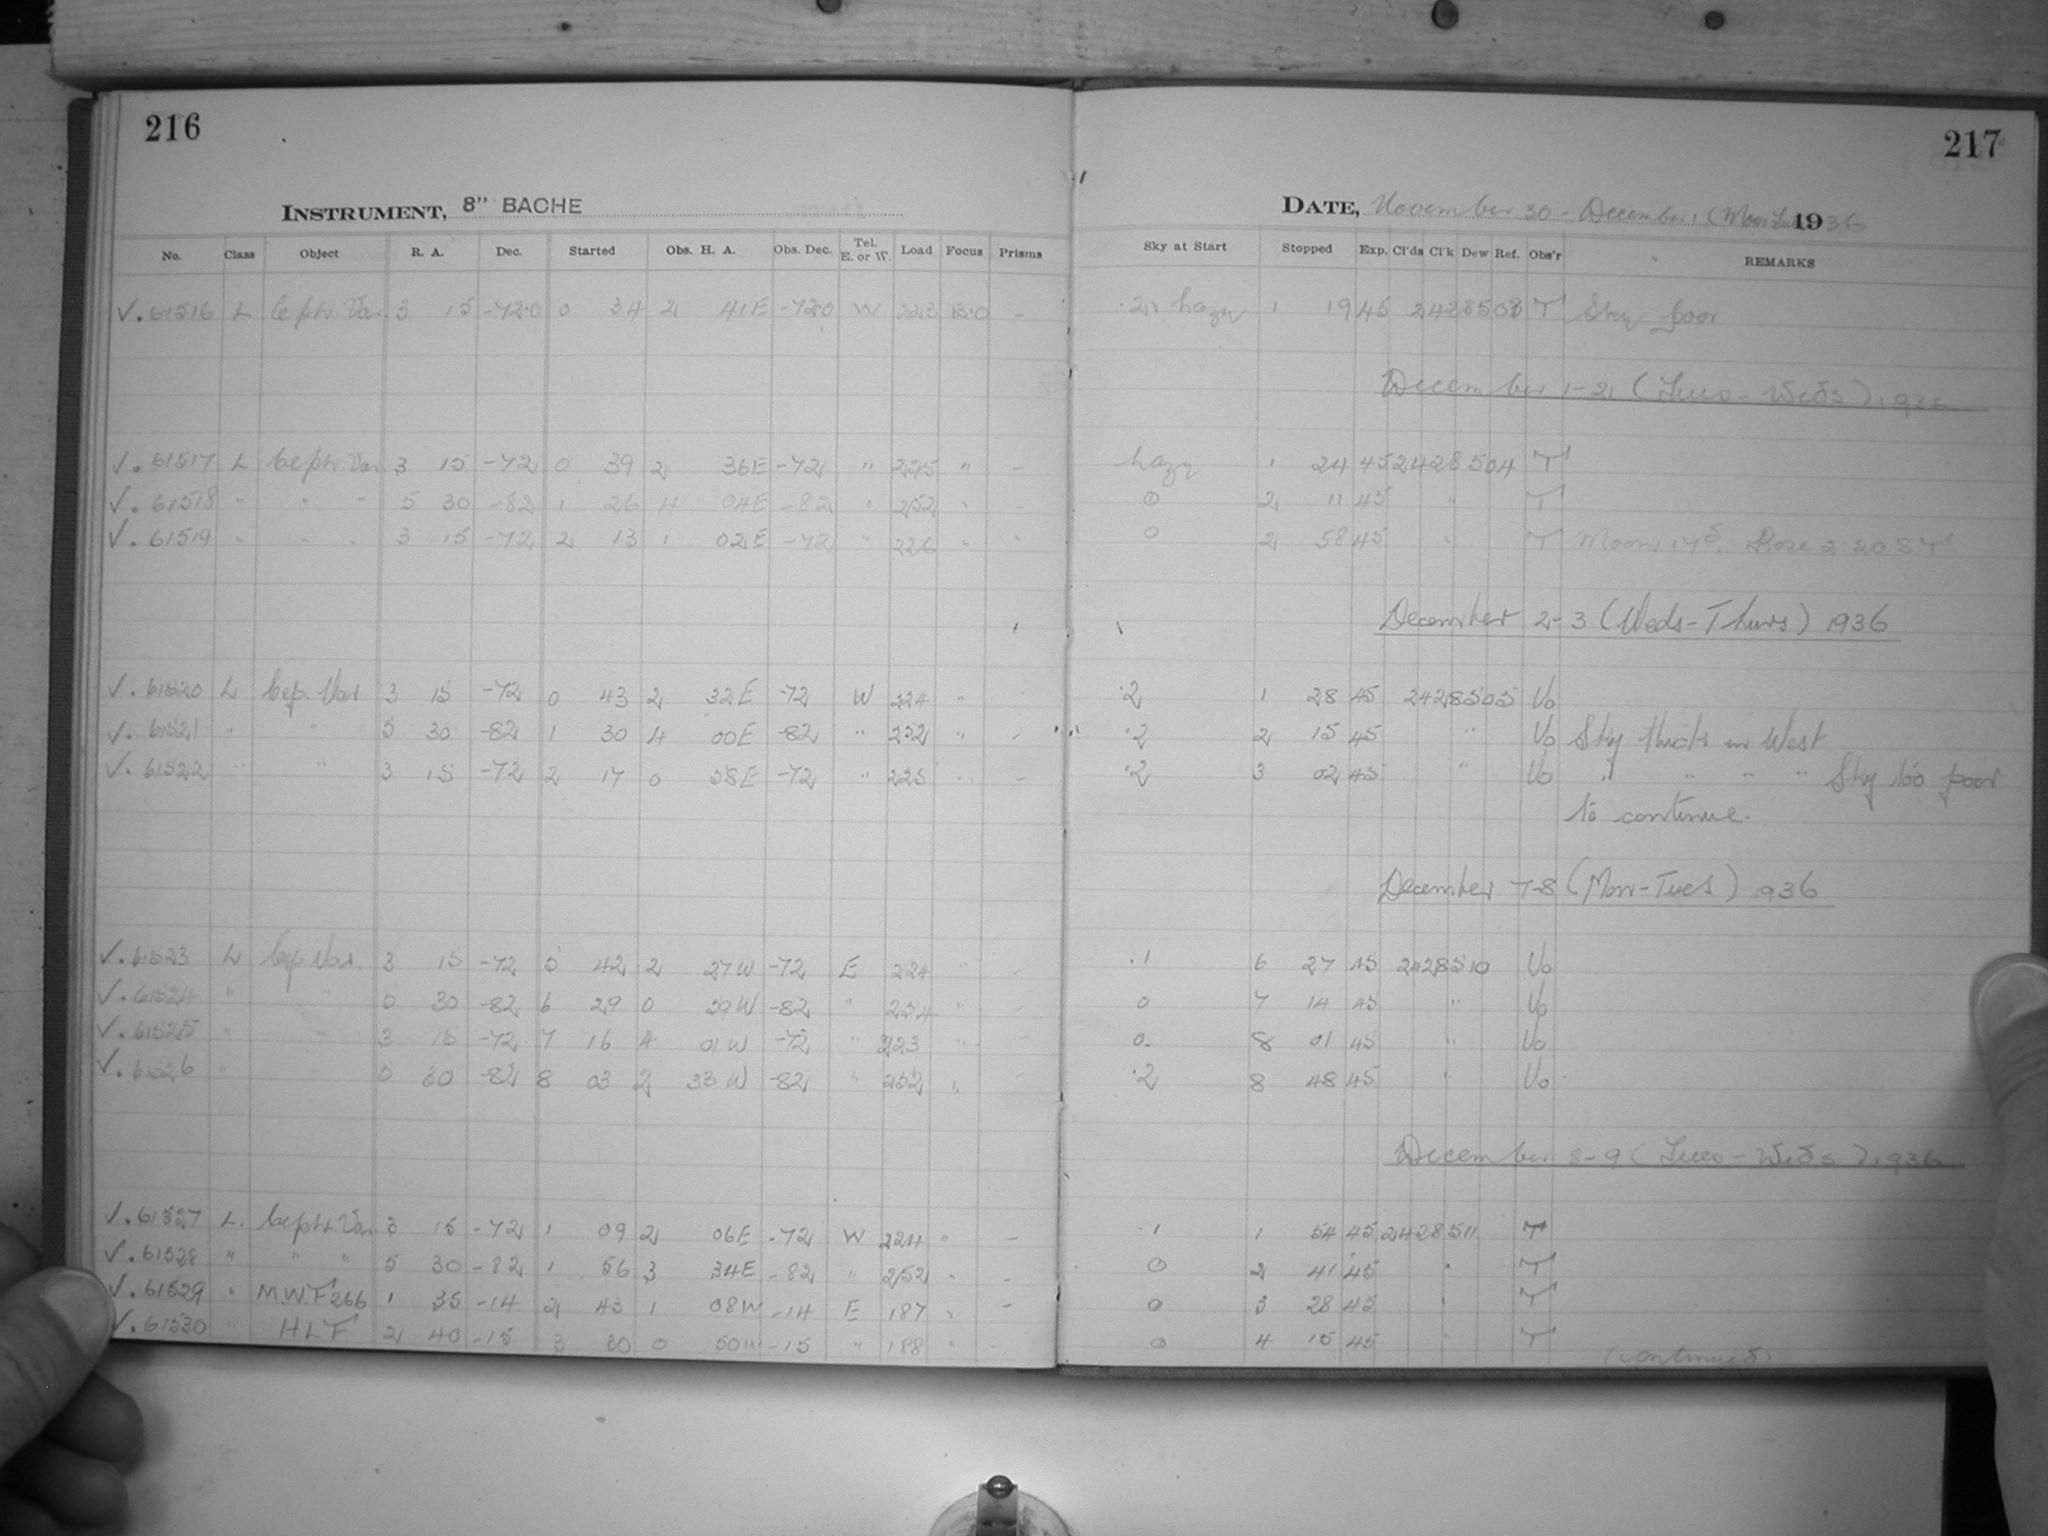 216
INSTRUMENT, 8" BACHE
No. Class Object R. A. Dec. Started Obs. H. A. Obs. Dec. Tel. E. or W. Load Focus Prisms
√. 61516 L Ceph. Var. 3 15 -72.0 0 34 2 41E -72.0 W 223 13.0 -
√. 61517 L Ceph. Var. 3 15 -72 0 39 2 36E -72 " 225 " -
√. 61518 " " " 5 30 -82 1 26 4 04E -82 " 252 " -
√. 61519 " " " 3 15 -72 2 13 1 02E -72 " 226 " "
√. 61520 L Cep. Var 3 15 -72 0 43 2 32E -72 W 224 "
√. 61521 " " 5 30 -82 1 30 4 00E -82 " 252 " -
√. 61522 " " 3 15 -72 2 17 0 58E -72 " 225 " -
√. 61523 L Cep. Var. 3 15 -72 5 42 2 27W -72 E 224 " -
√. 61524 " " 0 30 -82 6 29 0 59W -82 " 254 " -
√. 61525 " " 3 15 -72 7 16 4 01W -72 " 223 " -
√. 61526 " " 0 30 -82 8 03 2 33W -82 " 252 " -
√. 61527 L. Ceph. Var. 3 15 -72 1 09 2 06E -72 W 224 " -
√. 61528 " " " 5 30 -82 1 56 3 34E -82 " 252 " -
√. 61529 " M.W.F 266 1 35 -14 2 43 1 08W -14 E 187 " -
√. 61530 " HLF 2 40 -15 3 30 0 50W -15 " 188 " -
217
DATE, November 30 - December 1 (Mon 1936
Sky at Start Stopped Exp. Cl'ds Cl'k Dew Ref. Obs'r REMARKS
.2 hazy 1 19 45 2428503 T Sky poor
December 1-2 (Tues - Weds) 1936
hazy 1 24 45 2428504 T
0 2 11 45 " T
0 2 58 45 " T Moon 17d. Rose 2 20 ST
December 2-3 (Weds-Thurs) 1936
.2 1 28 45 2428505 Vo
.2 2 15 45 " Vo Sky thick in West
.2 3 02 45 " Vo " " " " Sky too poor
to continue.
December 7-8 (Mon-Tues) 1936
.1 6 27 45 2428510 Vo
0 7 14 45 " Vo
0 8 01 45 " Vo
.2 8 48 45 " Vo
December 8-9 (Tues - Weds.) 1936
.1 1 54 45 2428511 T
0 2 41 45 " T
0 3 28 45 " T
0 4 15 45 " T
(continued)